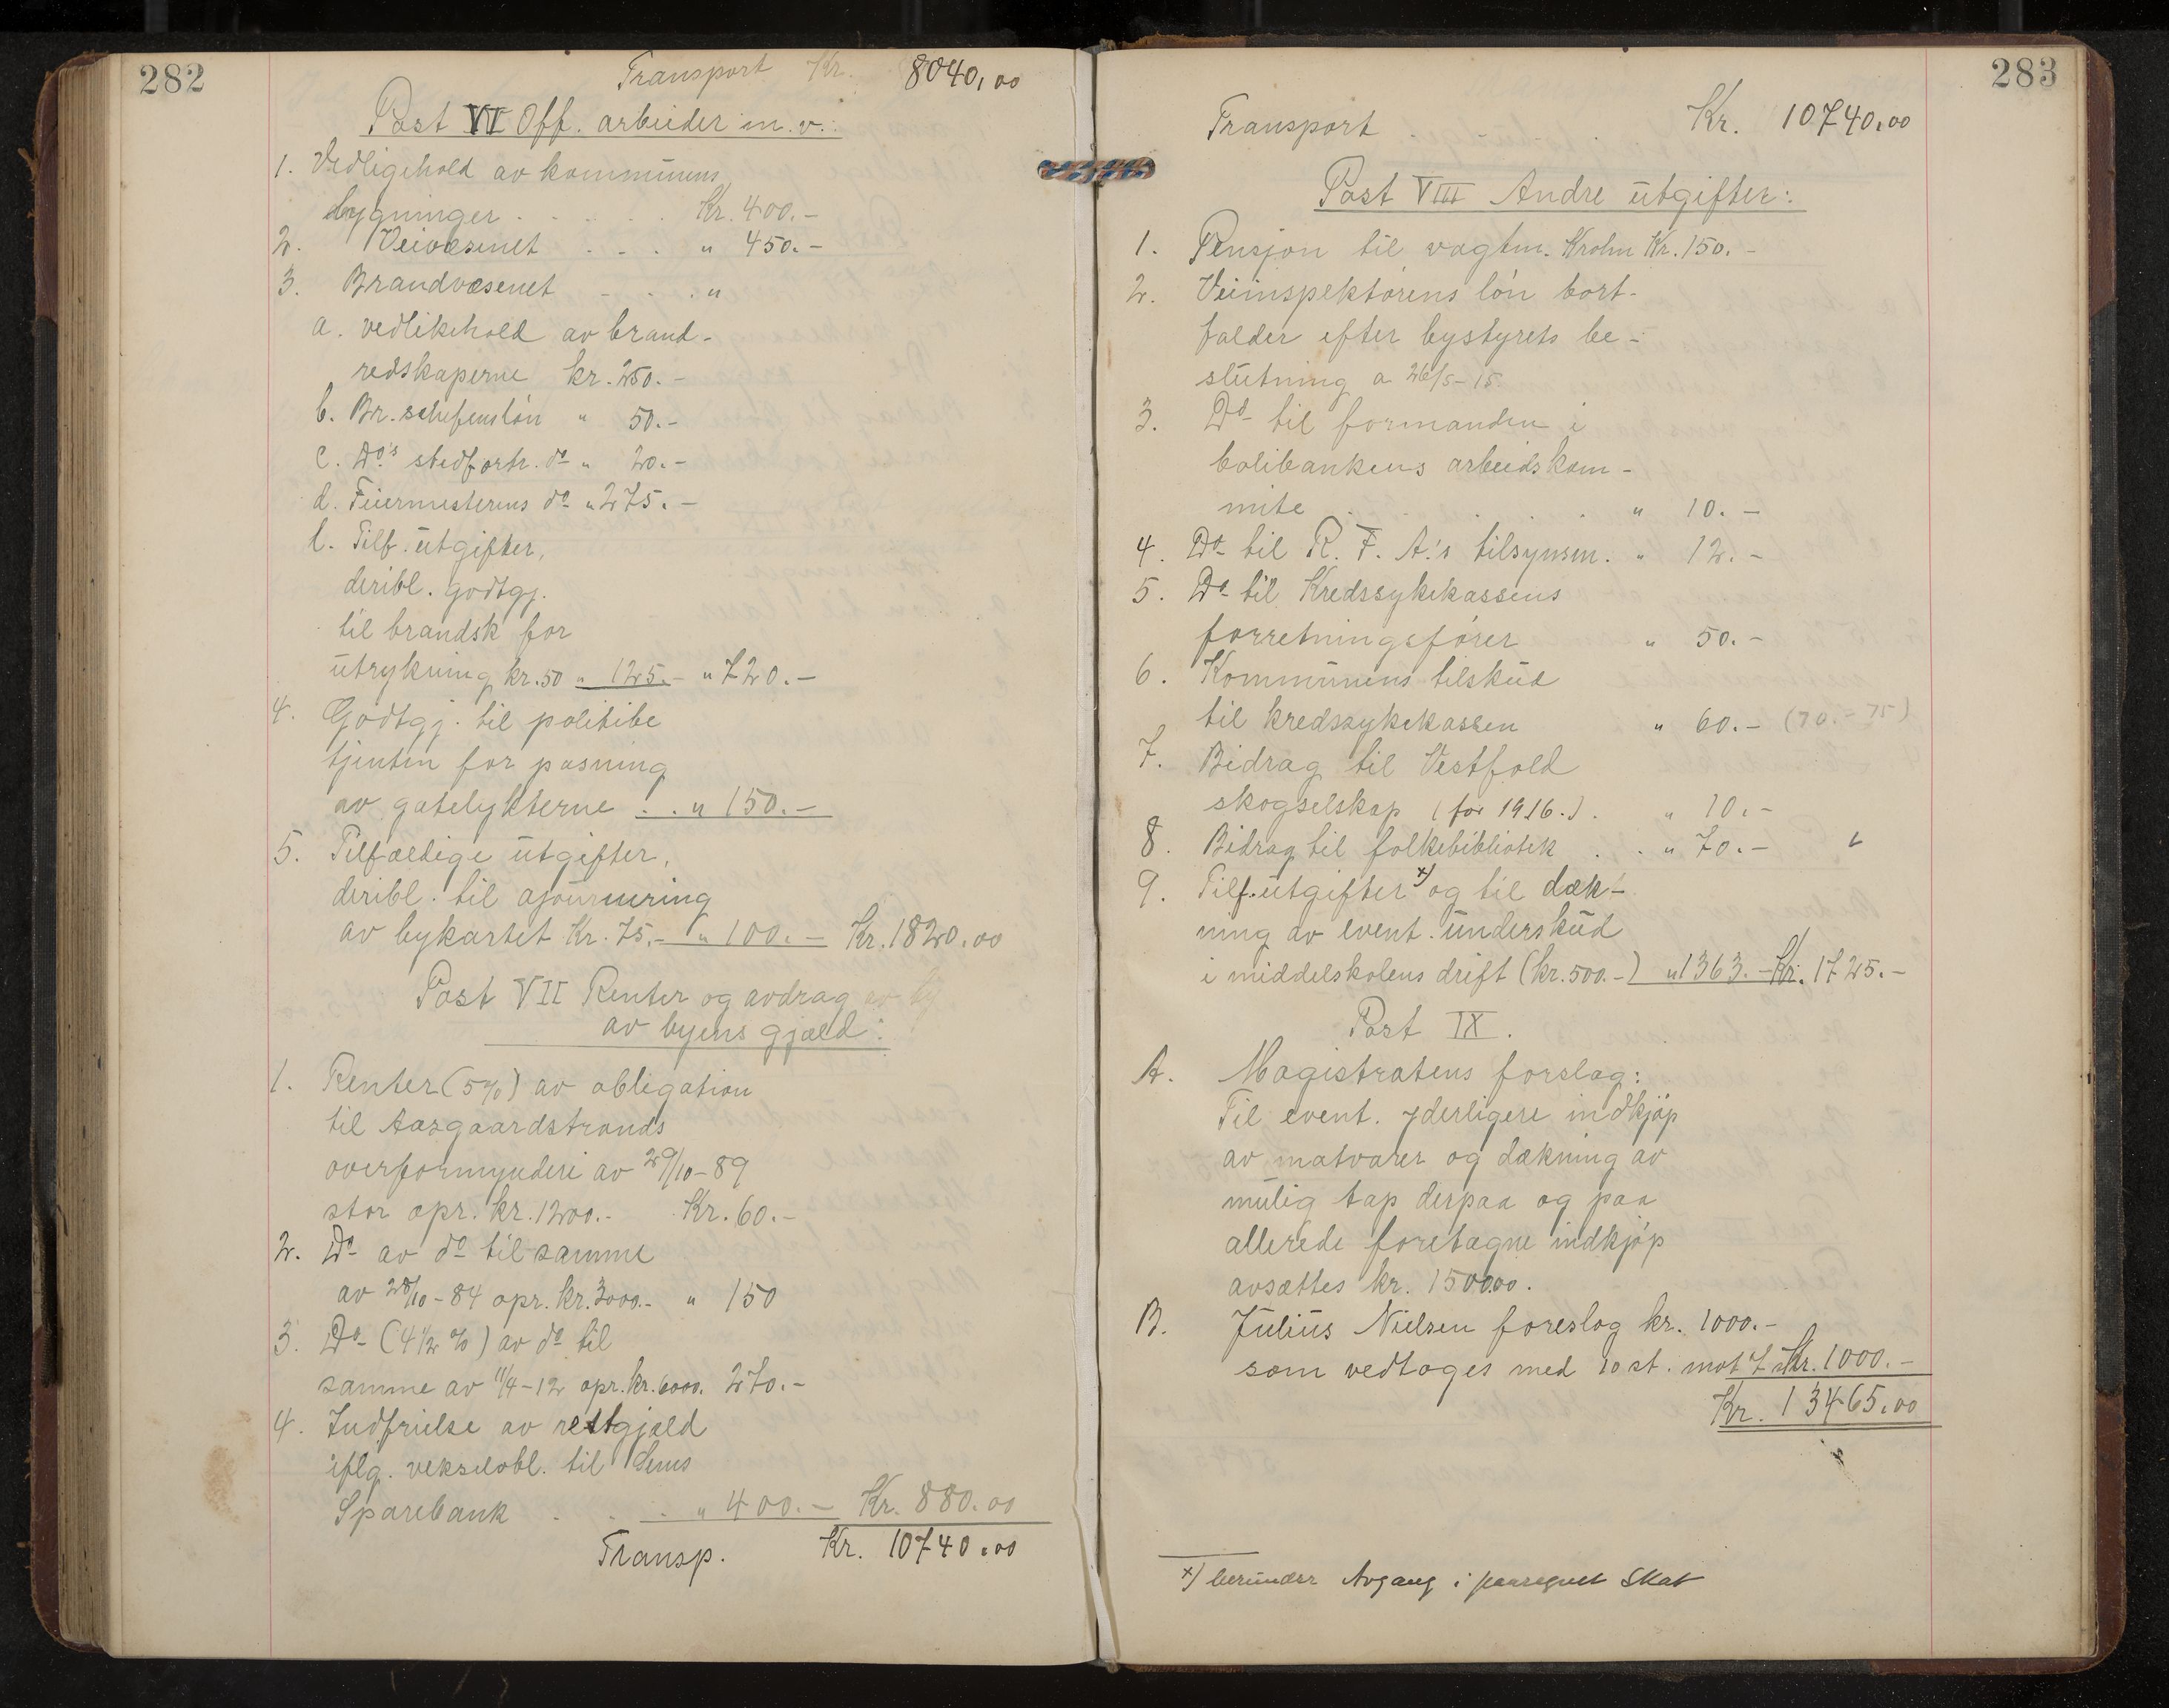 282
Transport Kr. 8040,00
Post VI Off. arbeider m. v.:
1. Vedligehold av kommunens
bygninger . . . . . Kr. 400.-
2. Veivæsenet . . . " 450.-
3. Brandvæsenet . . . "
a. vedlikehold av brand-
redskaperne kr. 250.-
b. Br. schefens løn " 50.-
c. Do's stedfortr. do " 20.-
d. Feiermesterens do " 275.-
e. Tilf. utgifter,
deribl. godtgj.
til brandsk for
utrykning kr. 50 " 125.- " 720.-
4. Godtgj. til politibe
tjenten for pasning
av gatelykterne . . " 150.-
5. Tilfældige utgifter,
deribl. til ajournering
av bykartet Kr. 75.- " 100.- Kr. 1820.00
Post VII Renter og avdrag av by
av byens gjæld:
1. Renter (5%) av obligation
til Aasgaardstrands
overformynderi av 29/10-89
stor opr. kr. 1200.- Kr. 60.-
2. Do av do til samme
av 28/10-84 opr. kr. 3000.- " 150
3. Do (4 1/2 %) av do til
samme av 11/4-12 opr. kr. 6000. 270.-
4. Indfrielse av restgjæld
iflg. vekselobl. til Sems
Sparebank . . . " 400.- Kr. 880.00
Transp. Kr. 10740.00
283
Transport . . . Kr. 10740.00
Post VIII Andre utgifter:
1. Pensjon til vagtm. Krohn Kr. 150.-
2. Veiinspektørens løn bort-
falder efter bystyrets be-
slutning a 26/5-15
3. Do til formanden i
bolibankens arbeidskom-
mite . . . " 10.-
4. Do til R. F. A.'s tilsynsm. " 12.-
5. Do til Kredssykekassens
forretningsfører " 50.-
6. Kommunens tilskud
til kredssykekassen " 60.- (70.- 75)
7. Bidrag til Vestfold
skogselskap (for 1916.) . " 10.-
8. Bidrag til folkebibliotek . . " 70.-
9. Tilf. utgifter x) og til dæk-
ning av event. underskud
i middelskolens drift (kr. 500.-) " 1363.- Kr. 1725.-
Post IX.
A. Magistratens forslag:
Til event. yderligere indkjøp
av matvarer og dækning av
mulig tap derpaa og paa
allerede foretagne indkjøp
avsættes kr. 1500.00.
B. Julius Nielsen foreslog kr. 1000.-
som vedtoges med 10 st. mot 7 Kr. 1000.-
Kr. 13465.00
x) herunder Avgang i paaregnet Skat